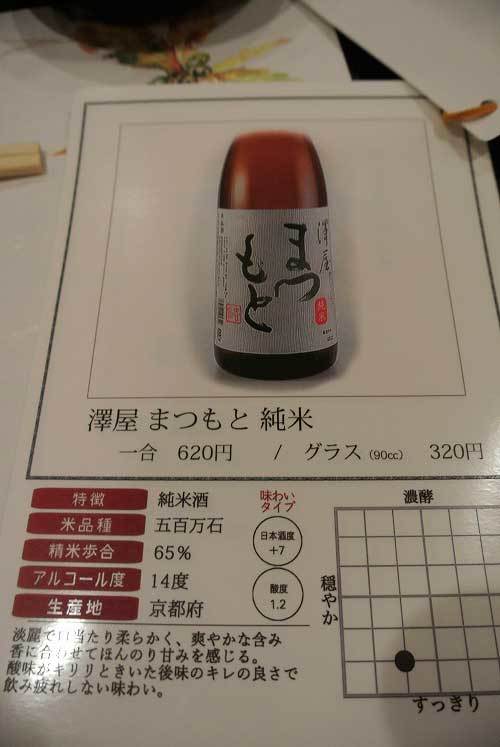 澤屋
まつもと
純米
澤屋 まつもと 純米
一合 620円 / グラス (90cc) 320円
特徴 純米酒
米品種 五百万石
精米歩合 65%
アルコール度 14度
生産地 京都府
味わい
タイプ
日本酒度
+7
酸度
1.2
濃醇
穏やか
すっきり
淡麗で口当たり柔らかく、爽やかな含み
香に合わせてほんのり甘みを感じる。
酸味がキリリときいた後味のキレの良さで
飲み疲れしない味わい。